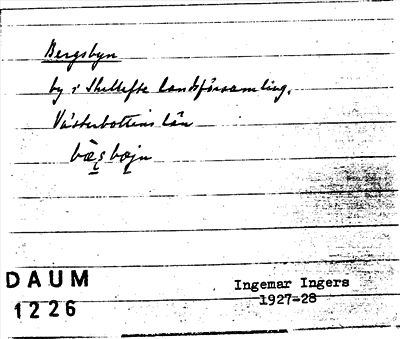 Bergsbyn
by i Skellefte landsförsamling,
Västerbottens län
DAUM
1226
Ingemar Ingers
1927-28